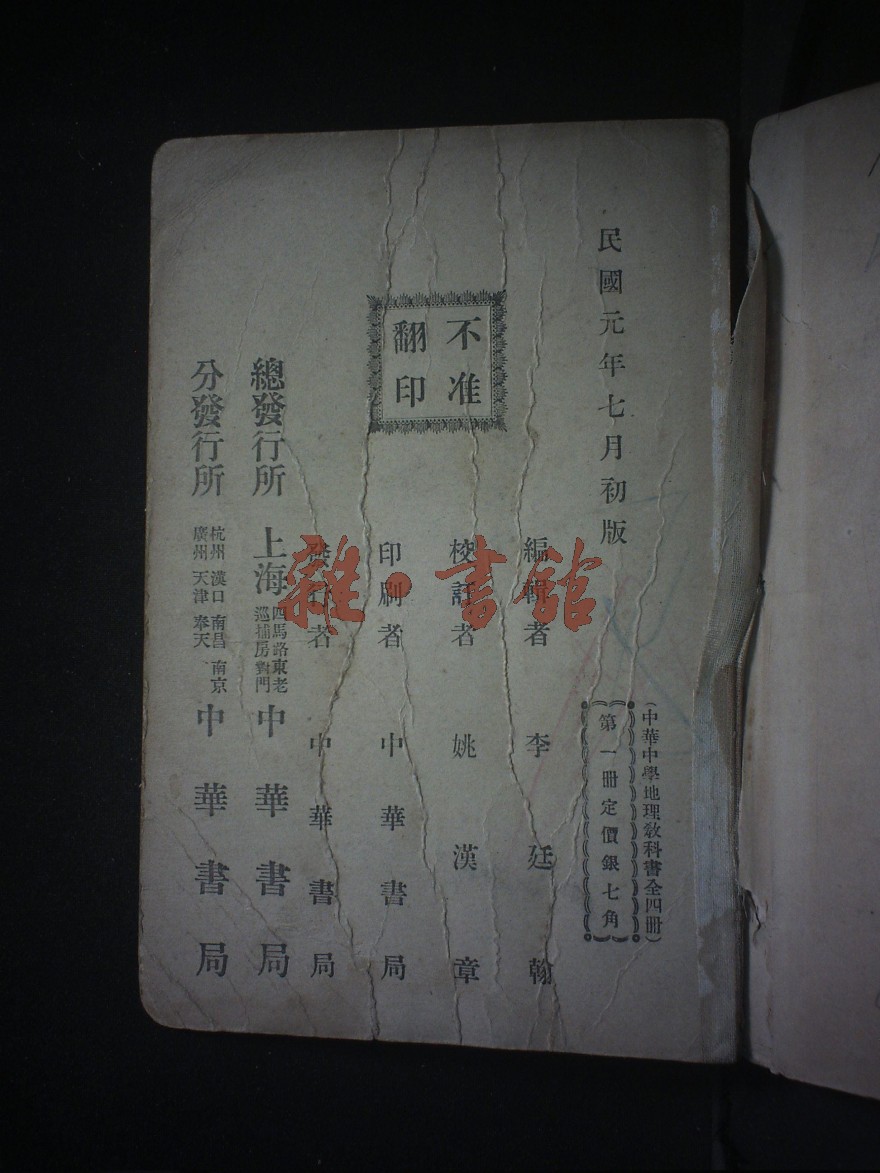 民國元年七月初版
(中華中學地理教科書全四冊)
第一冊定價銀七角
不准
翻印
編輯者 李廷翰
校訂者 姚漢章
印刷者 中華書局
發行者 中華書局
總發行所 上海 四馬路東老巡捕房對門 中華書局
分發行所 杭州 漢口 南昌 南京 廣州 天津 奉天 中華書局
雜·書館